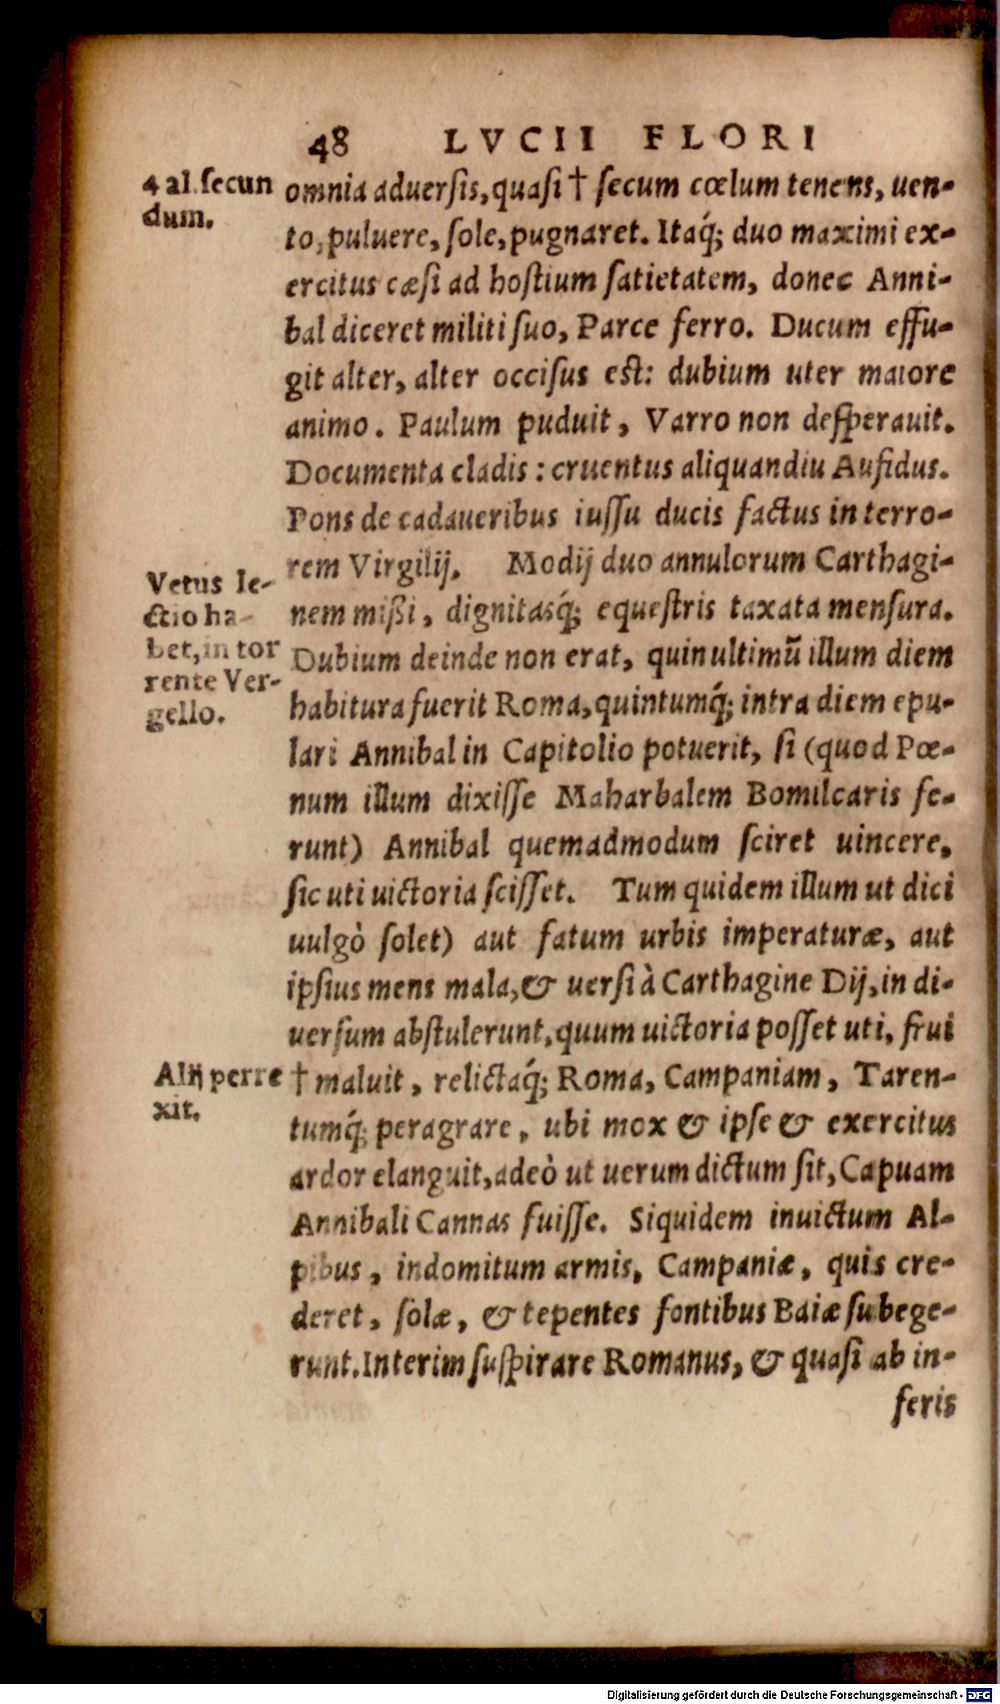 48 LVCII FLORI
4 al. secun
dum.
omnia aduersis, quasi † secum cœlum tenens, uen-
to, puluere, sole, pugnaret. Itaq́; duo maximi ex-
ercitus cæsi ad hostium satietatem, donec Anni-
bal diceret militi suo, Parce ferro. Ducum effu-
git alter, alter occisus est: dubium uter maiore
animo. Paulum puduit, Varro non desperauit.
Documenta cladis: cruentus aliquandiu Aufidus.
Pons de cadaueribus iussu ducis factus in terro-
rem Virgilij. Modij duo annulorum Carthagi-
Vetus le-
ctio ha-
bet, in tor
rente Ver-
gello.
nem mißi, dignitasq́; equestris taxata mensura.
Dubium deinde non erat, quin ultimũ illum diem
habitura fuerit Roma, quintumq́; intra diem epu-
lari Annibal in Capitolio potuerit, si (quod Pœ-
num illum dixisse Maharbalem Bomilcaris fe-
runt) Annibal quemadmodum sciret uincere,
sic uti uictoria scisset. Tum quidem illum ut dici
uulgò solet) aut fatum urbis imperaturæ, aut
ipsius mens mala, & uersi à Carthagine Dij, in di-
uersum abstulerunt, quum uictoria posset uti, frui
Alij perre
xit.
† maluit, relictaq́; Roma, Campaniam, Taren-
tumq́; peragrare, ubi mox & ipse & exercitus
ardor elanguit, adeò ut uerum dictum sit, Capuam
Annibali Cannas fuisse. Siquidem inuictum Al-
pibus, indomitum armis, Campaniæ, quis cre-
deret, solæ, & tepentes fontibus Baiæ subege-
runt. Interim suspirare Romanus, & quasi ab in-
feris
Digitalisierung gefördert durch die Deutsche Forschungsgemeinschaft - DFG